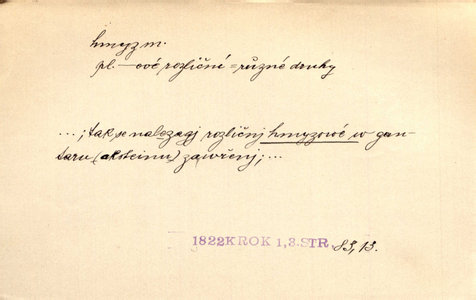 hmyz m.
pl. —ové rozliční = různé druhy
...; tak se nalezagj rozličnj hmyzowé w gan-
taru (aksteinu) zawřenj; ...
1822 KROK 1, 3. STR. 83, 13.